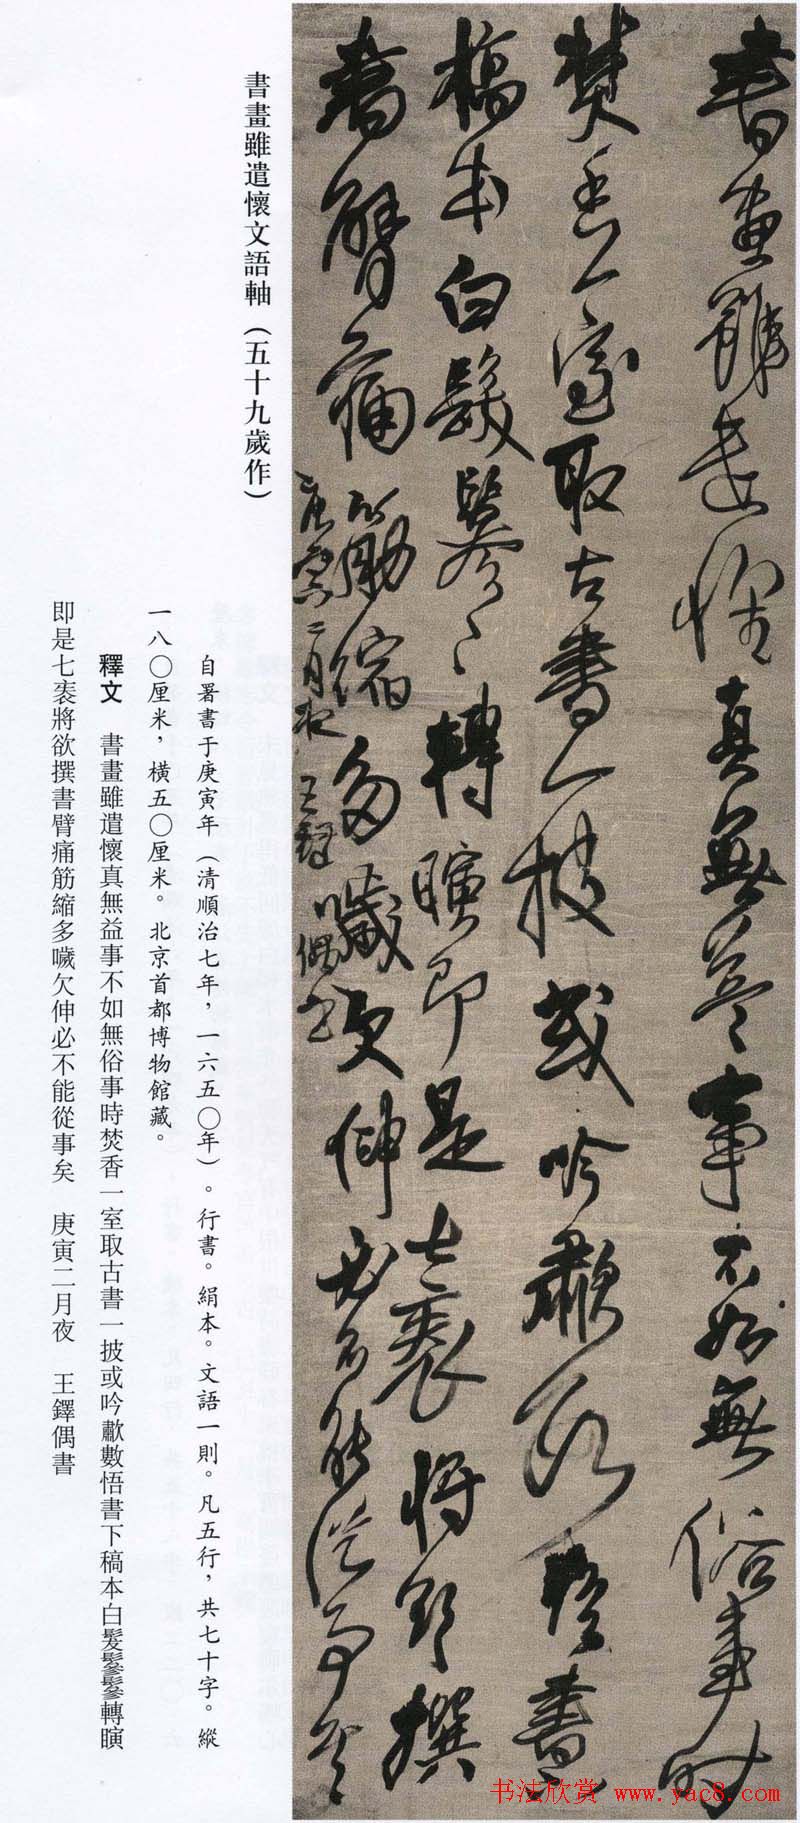 書畫雖遣懷真無益事不如無俗事時
焚香一室取古書一披或吟歗書下
稿本白髮鬖〻轉瞚即是七袠將欲撰
書臂痛筋縮多噦欠伸必不能從事矣
庚寅二月夜 王鐸偶書
書畫雖遣懷文語軸（五十九歲作）
自署書于庚寅年（清順治七年，一六五〇年）。行書。絹本。文語一則。凡五行，共七十字。縱
一八〇厘米，橫五〇厘米。北京首都博物館藏。
釋文 書畫雖遣懷真無益事不如無俗事時焚香一室取古書一披或吟歗數悟書下稿本白髮鬖鬖轉瞚
即是七袠將欲撰書臂痛筋縮多噦欠伸必不能從事矣 庚寅二月夜 王鐸偶書
书法欣赏 www.yac8.com